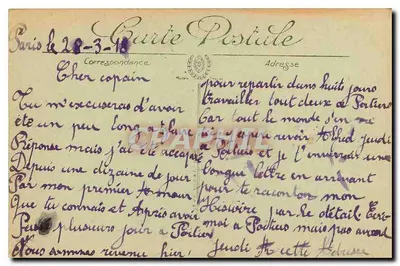 Carte Postale
Paris le 28-3-18
Correspondance
Adresse
Cher copain
Tu m'excuseras d'avoir
été un peu long a la
Réponse mais j'ai été
Depuis une dizaine de jours
Par mon premier Amour
Que tu connais et Après avoir
Passé plusieurs jour a Poitiers
Nous sommes revenu hier
pour repartir dans huits jours
travailler tout deux a Poitiers
Car tout le monde s'en
a avoir jeudi
a Poitiers et je t'enverrai une
longue lettre en arrivant
pour te raconter mon
Histoire par le détail Ecri-
moi a Poitiers mais pas avant
jeudi A cette Adresse
CPAPHIL